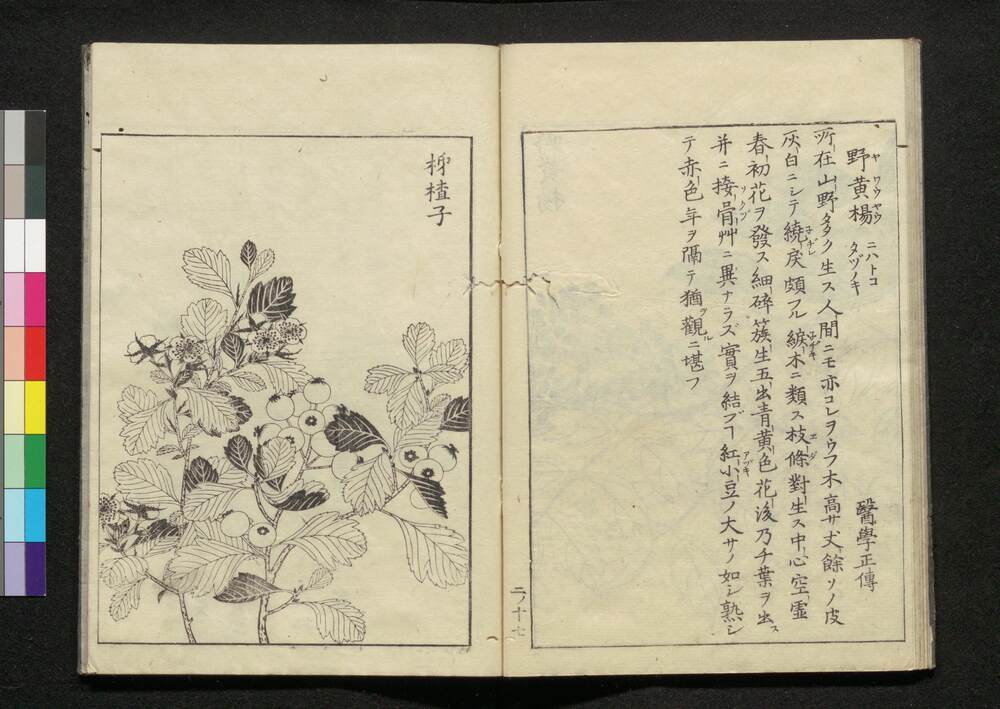 野黄楊 ニハトコ タヅノキ 醫學正傳
ヤワウヤウ
所在山野多ク生ス人間ニモ亦コレヲウフ木高サ丈餘ソノ皮
灰白ニシテ繞戻頗フル綟木ニ類ス枝條對生ス中心空虛
春初花ヲ發ス細碎簇生五出青黄色花後乃チ葉ヲ出ス
并ニ接骨艸ニ異ナラズ實ヲ結ブヿ紅小豆ノ大サノ如シ熟シ
ソクヅ
アヅキ
テ赤色年ヲ隔テ猶觀ルニ堪フ
二ノ十七
楂子